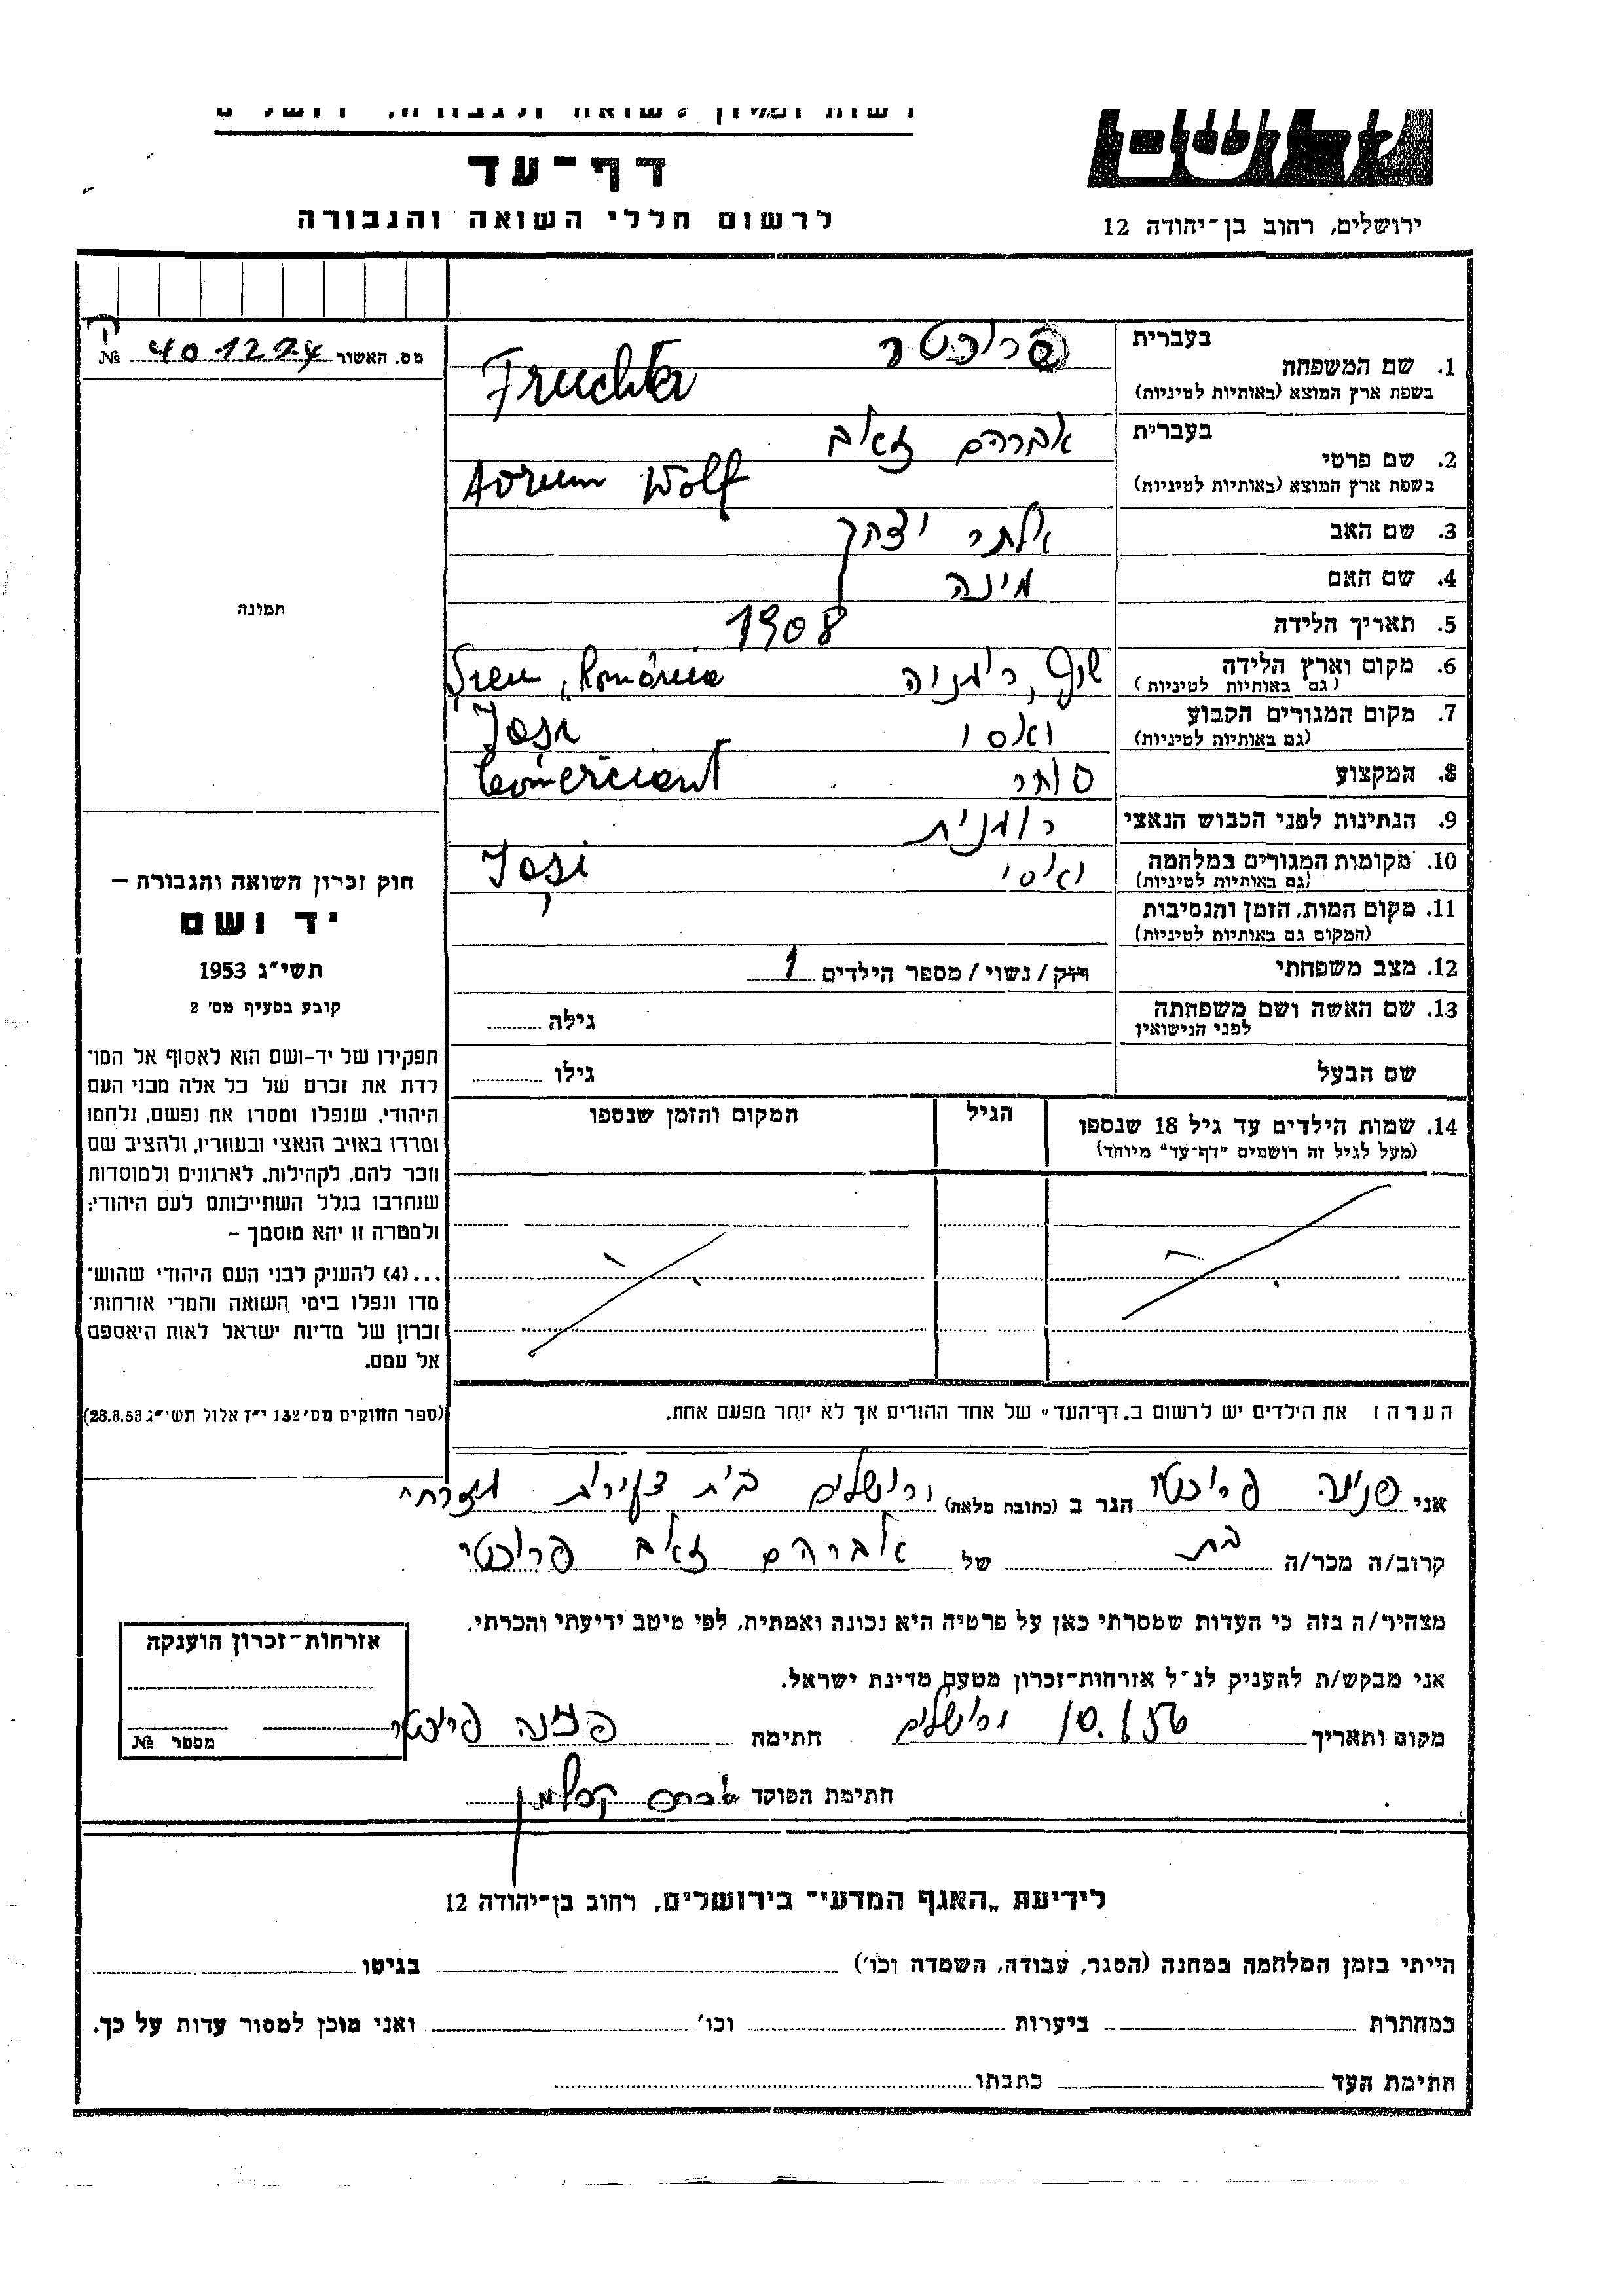 דף־עד
לרשום חללי השואה והגבורה
ירושלים, רחוב בן־יהודה 12
מס. האשור 401224 №
1. שם המשפחה
בעברית פרוכטר
בשפת ארץ המוצא (באותיות לטיניות) Fruchter
2. שם פרטי
בעברית אברהם זאב
בשפת ארץ המוצא (באותיות לטיניות) Avrum Wolf
3. שם האב אלתר יצחק
4. שם האם מינה
5. תאריך הלידה 1908
6. מקום וארץ הלידה
(גם באותיות לטיניות) Romănia
7. מקום המגורים הקבוע יאסי
(גם באותיות לטיניות) Iaşi
8. המקצוע סוחר Comerciant
9. הנתינות לפני הכבוש הנאצי רומנית
10. מקומות המגורים במלחמה יאסי
(גם באותיות לטיניות) Iaşi
11. מקום המות, הזמן והנסיבות
(המקום גם באותיות לטיניות)
12. מצב משפחתי רווק / נשוי / מספר הילדים 1
13. שם האשה ושם משפחתה
לפני הנישואין גילה
שם הבעל גילו
14. שמות הילדים עד גיל 18 שנספו
(מעל לגיל זה רושמים "דף־עד" מיוחד)
הגיל
המקום והזמן שנספו
תמונה
חוק זכרון השואה והגבורה –
יד ושם
תשי"ג 1953
קובע בסעיף מס' 2
תפקידו של יד-ושם הוא לאסוף אל המו־
לדת את זכרם של כל אלה מבני העם
היהודי, שנפלו ומסרו את נפשם, נלחמו
ומרדו באויב הנאצי ובעוזריו, ולהציב שם
וזכר להם, לקהילות, לארגונים ולמוסדות
שנחרבו בגלל השתייכותם לעם היהודי;
ולמטרה זו יהא מוסמך –
...(4) להעניק לבני העם היהודי שהוש־
מדו ונפלו בימי השואה והמרי אזרחות־
זכרון של מדינת ישראל לאות היאספם
אל עמם.
(ספר החוקים מס' 132 י"ז אלול תשי"ג 28.8.53)
הערה: את הילדים יש לרשום ב„דף־העד" של אחד ההורים אך לא יותר מפעם אחת.
אני פנינה פרוכטר הגר ב (כתובת מלאה) ירושלים בית צעירות מזרחי
קרוב/ה מכר/ה בת של אברהם זאב פרוכטר
מצהיר/ה בזה כי העדות שמסרתי כאן על פרטיה היא נכונה ואמתית, לפי מיטב ידיעתי והכרתי.
אני מבקש/ת להעניק לנ"ל אזרחות־זכרון מטעם מדינת ישראל.
מקום ותאריך ירושלים חתימה פנינה פרוכטר
חתימת הפוקד
אזרחות־זכרון הוענקה
מספר №
לידיעת „האגף המדעי" בירושלים, רחוב בן־יהודה 12
הייתי בזמן המלחמה במחנה (הסגר, עבודה, השמדה וכו') בגיטו
במחתרת ביערות וכו' ואני מוכן למסור עדות על כך.
חתימת העד כתבתו